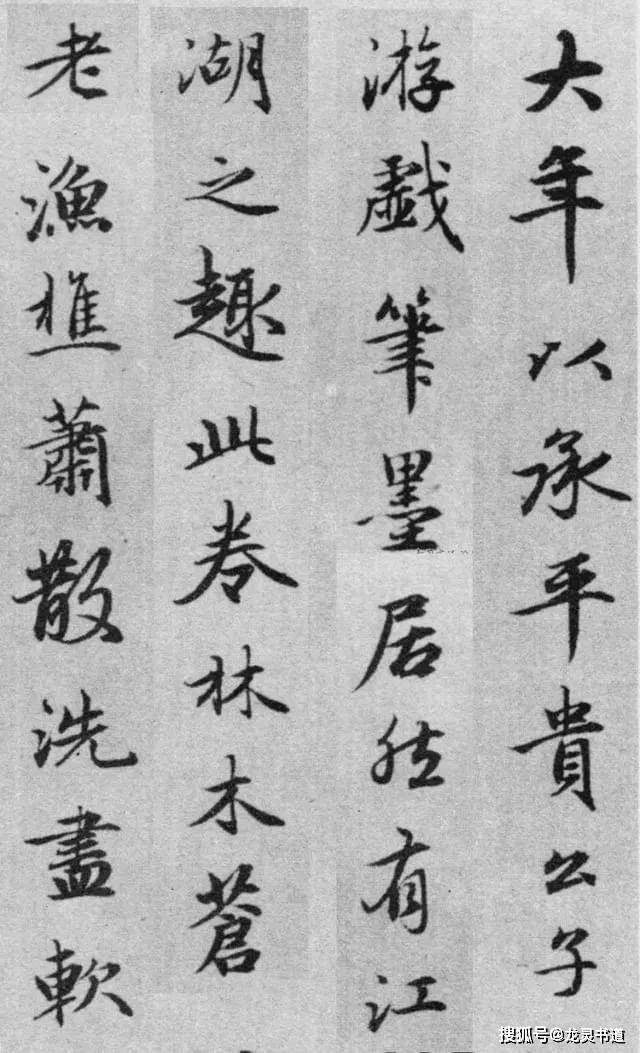 大年以承平貴公子
游戲筆墨居然有江
湖之趣此卷林木蒼
老漁樵蕭散洗盡軟
搜狐号@龙灵书道